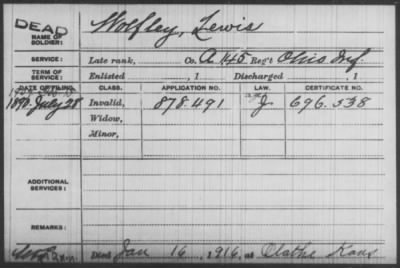 DEAD
NAME OF SOLDIER: Wolfley, Lewis
SERVICE: Late rank, Co. A. 145 Reg't Ohio Inf.
TERM OF SERVICE: Enlisted , 1 Discharged , 1
DATE OF FILING. CLASS. APPLICATION NO. LAW. CERTIFICATE NO.
1890. July 28 Invalid, 878.491 J 696.538
Widow,
Minor,
ADDITIONAL SERVICES:
REMARKS:
Died Jan 16, 1916, at Olathe Kans